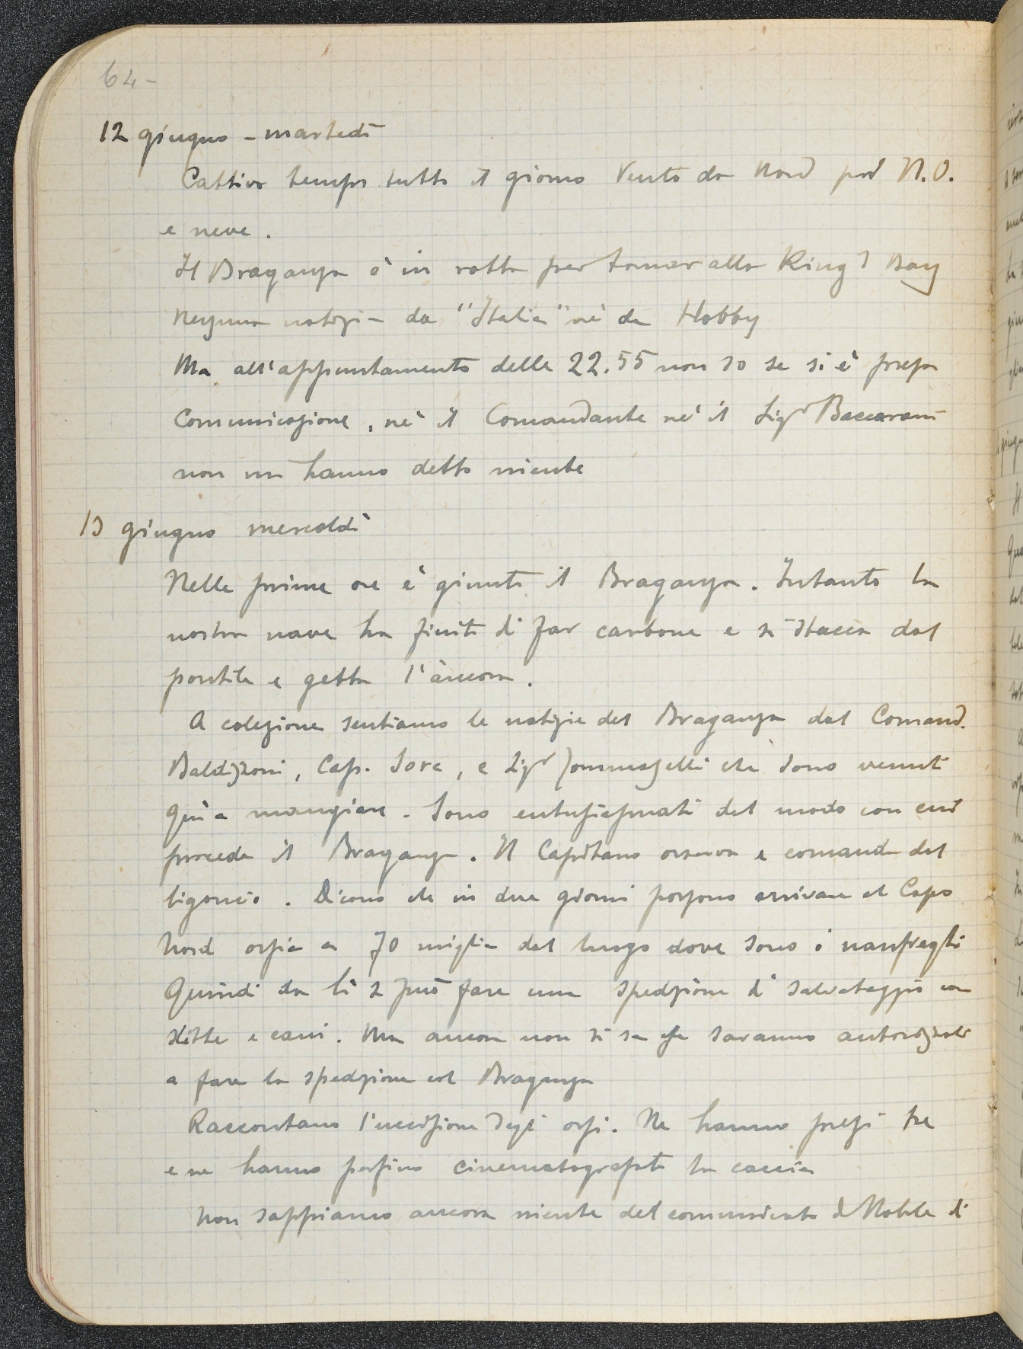 64-
12 giugno - martedì
Cattivo tempo tutto il giorno Vento da Nord poi N.O.
e neve.
Il Braganza è in rotta per tornar alla King's Bay
Nessuna notizia da "Italia" nè da Hobby
Ma all'appuntamento delle 22.55 non so se si è presa
Comunicazione, nè il Comandante nè il Sigr Baccarani
non mi hanno detto niente
13 giugno mercoldì
Nelle prime ore è giunto il Braganza. Intanto la
nostra nave ha finito di far carbone e si stacca dal
pontile e getta l'àncora.
A colezione sentiamo le notizie del Braganza dal Comand.
Baldizzoni, Cap. Sora, e Sigr che sono venuti
quì a mangiare. Sono entusiasmati del modo con cui
procede il Braganza. Il Capitano osserva e comanda dal
bigoncio. Dicono che in due giorni possono arrivare al Capo
Nord ossia a 70 miglia dal luogo dove sono i naufraghi
Quindi da lì si può fare una spedizione di salvataggio con
slitte e cani. Ma ancora non si sa se saranno autorizzati
a fare la spedizione col Braganza
Raccontano l'uccisione degli orsi. Ne hanno presi tre
e ne hanno perfino cinematografata la caccia
Non sappiamo ancora niente del comunicato di Nobile di